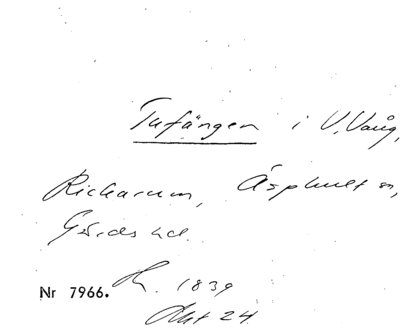 Tufängen i V. Vång,
Rickarum, Äsphult sn,
Gärds hd.
Nr 7966. 1839
Akt 24